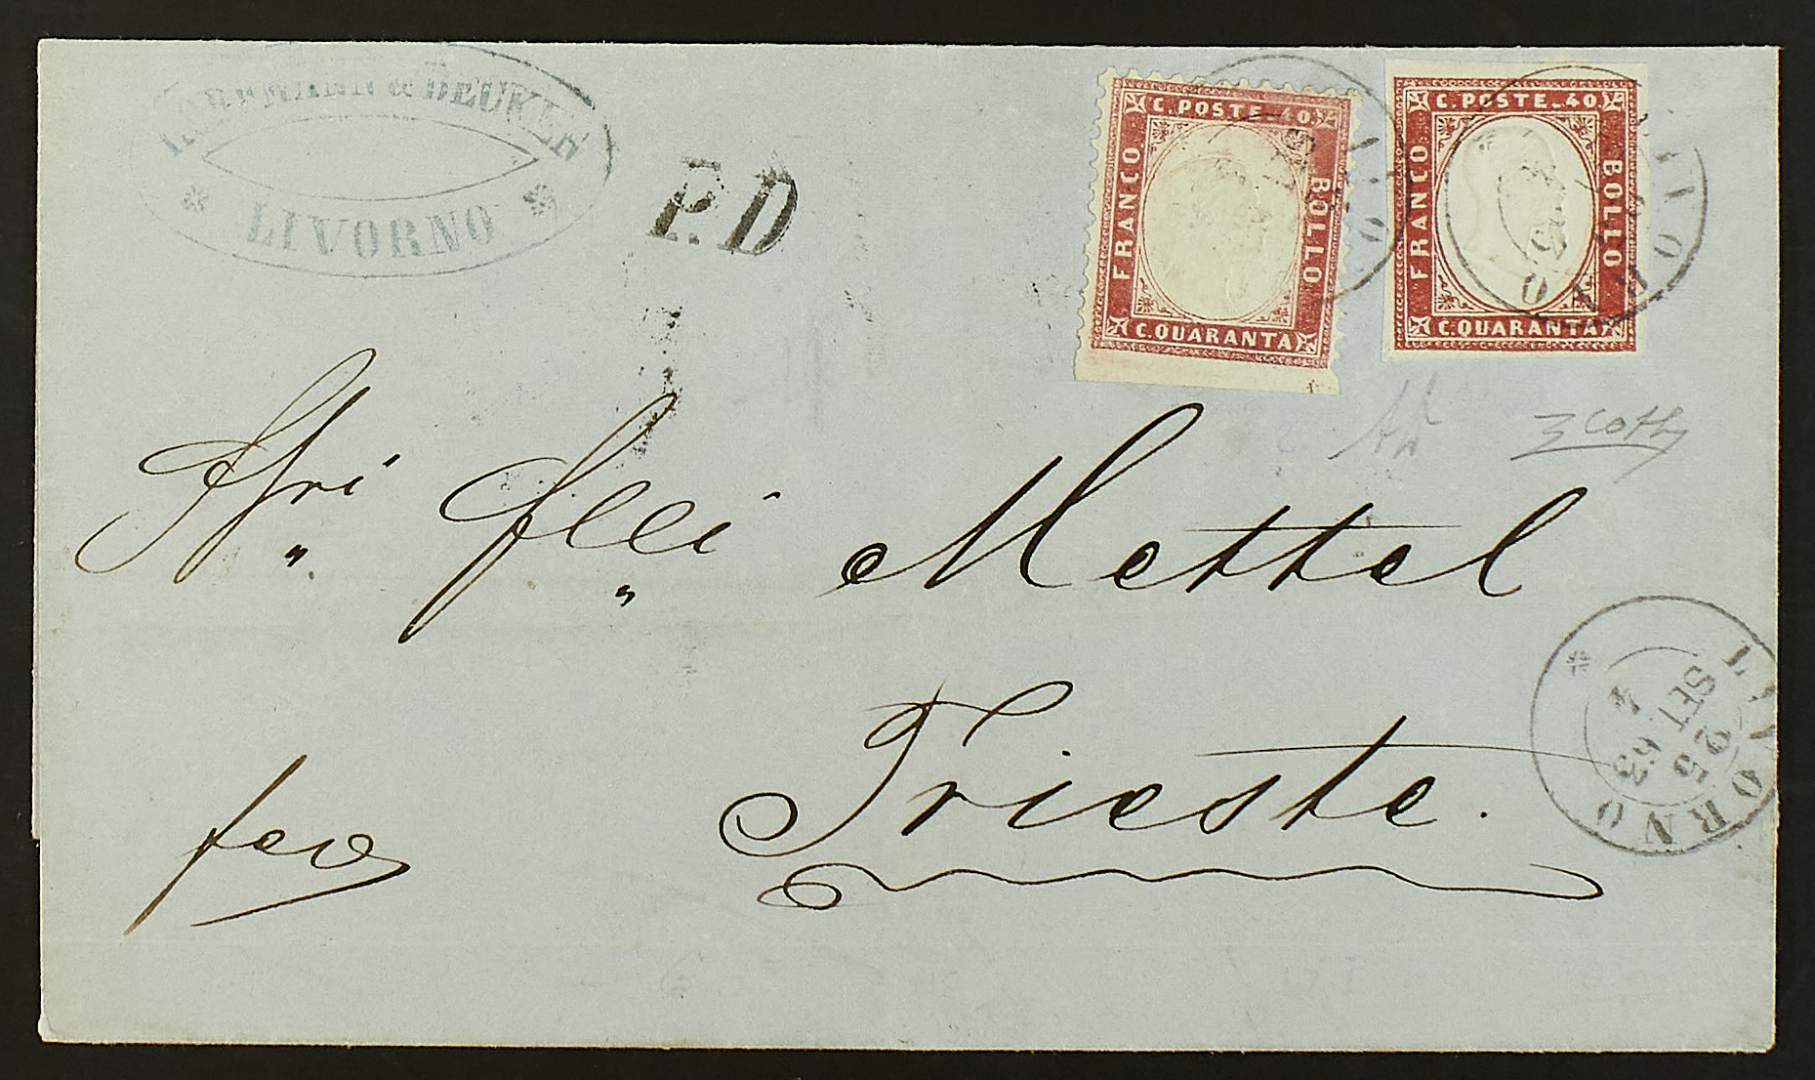 & DECKER
* LIVORNO *
P.D
C. POSTE. 40.
FRANCO
BOLLO
C. QUARANTA
C. POSTE. 40.
FRANCO
BOLLO
C. QUARANTA
LIVORNO
LIVORNO
flli Mettel
Trieste.
LIVORNO
25
SET 63
4